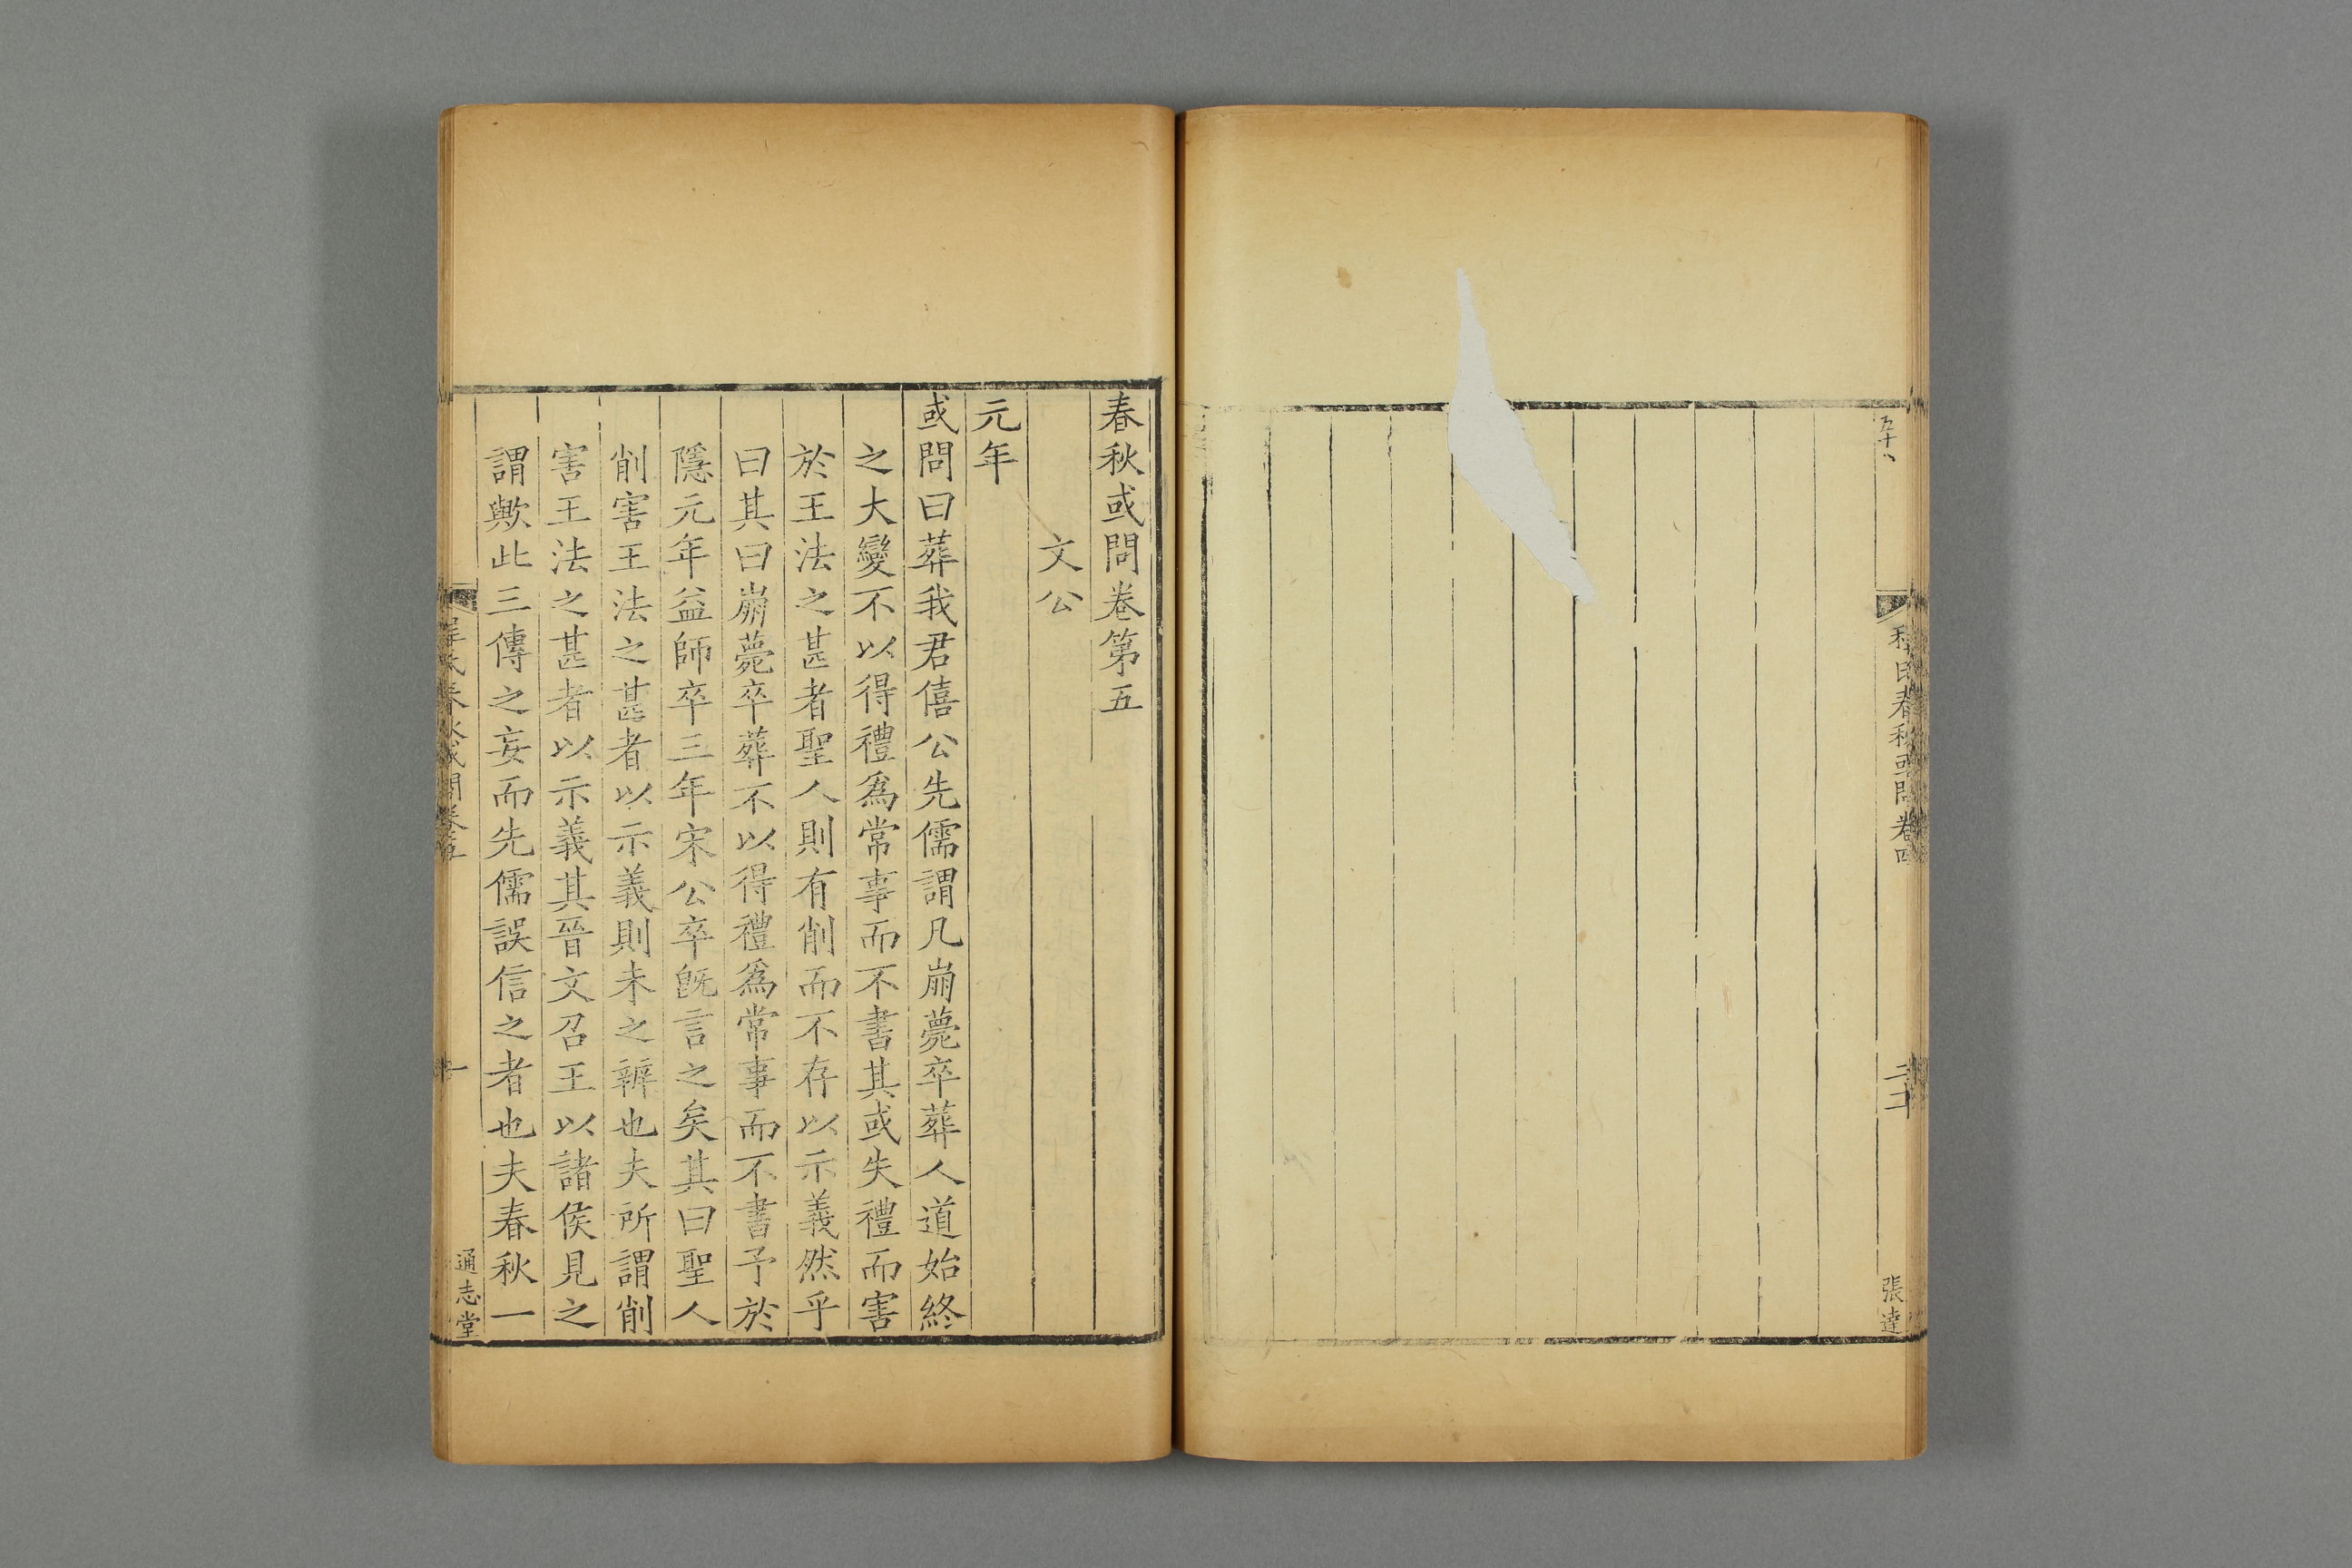 程氏春秋或問卷四
二十二
張達
春秋或問卷第五
文公
元年
或問曰葬我君僖公先儒謂凡崩薨卒葬人道始終
之大變不以得禮爲常事而不書其或失禮而害
於王法之甚者聖人則有削而不存以示義然乎
曰其曰崩薨卒葬不以得禮爲常事而不書予於
隱元年益師卒三年宋公卒旣言之矣其曰聖人
削害王法之甚者以示義則未之辨也夫所謂削
害王法之甚者以示義其晉文召王以諸侯見之
謂歟此三傳之妄而先儒誤信之者也夫春秋一
程氏春秋或問卷五
一
通志堂